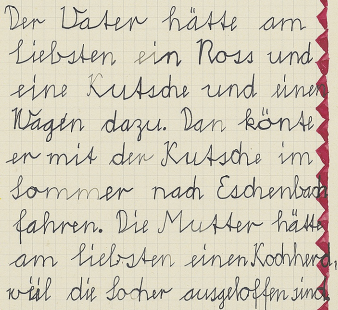 Der Vater hätte am
liebsten ein Ross und
eine Kutsche und einen
Wagen dazu. Dan könte
er mit der Kutsche im
Sommer nach Eschenbach
fahren. Die Mutter hätte
am liebsten einen Kochherd,
weil die Locher ausgeloffen sind.